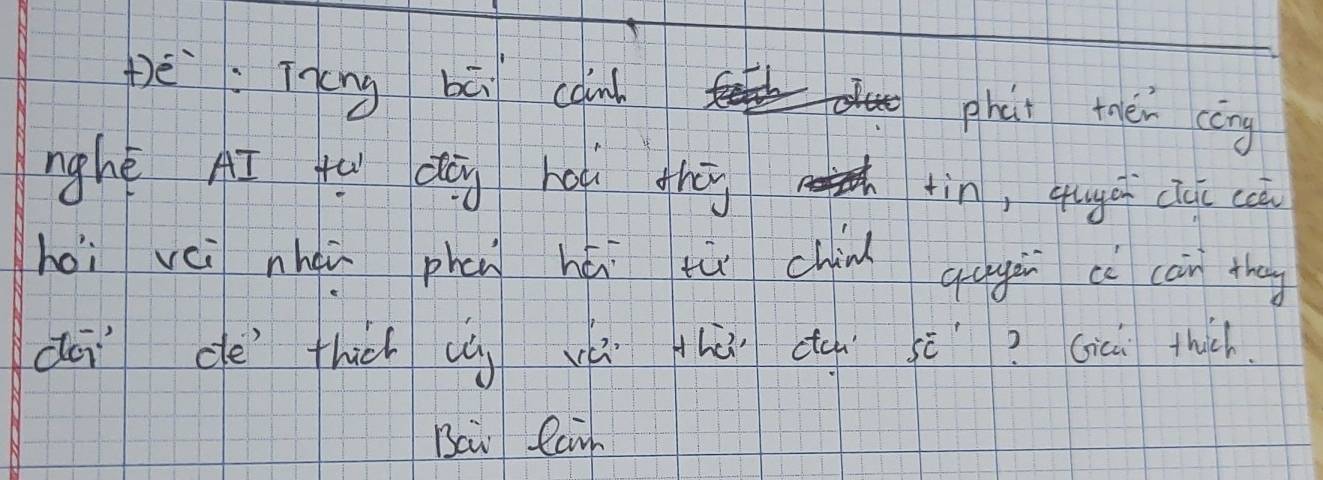 Đề : Trong bối cảnh phát triển công
nghệ AI tự động hoá thông tin, quyền đặt câu
hỏi và nhận phản hồi từ chính quyền có cần thay
đổi để thích ứng với thời đại số ? Giải thích.
Bài làm